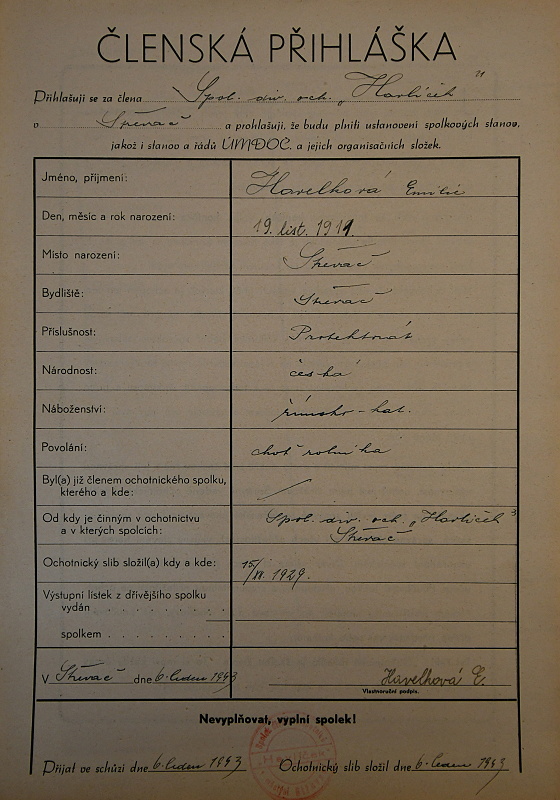 ČLENSKÁ PŘIHLÁŠKA
Přihlašuji se za člena Spol. div. och. „Havlíček"
v Střevač a prohlašuji, že budu plniti ustanovení spolkových stanov,
jakož i stanov a řádů ÚMDOČ. a jejich organisačních složek.
Jméno, příjmení: Havelková Emilie
Den, měsíc a rok narození: 19. list. 1911.
Místo narození: Střevač
Bydliště: Střevač
Příslušnost: Protektorát
Národnost: česká
Náboženství: římsko-kat.
Povolání: choť rolníka
Byl(a) již členem ochotnického spolku,
kterého a kde: /
Od kdy je činným v ochotnictvu Spol. div. och. „Havlíček"
a v kterých spolcích: Střevač
Ochotnický slib složil(a) kdy a kde: 1929.
Výstupní lístek z dřívějšího spolku
vydán . . . . . . . . .
spolkem . . . . . . . .
V Střevač dne 6. leden 1943 Havelková E.
Vlastnoruční podpis.
Nevyplňovat, vyplní spolek!
Přijat ve schůzi dne 6. leden 1943 Ochotnický slib složil dne 6. leden 1943